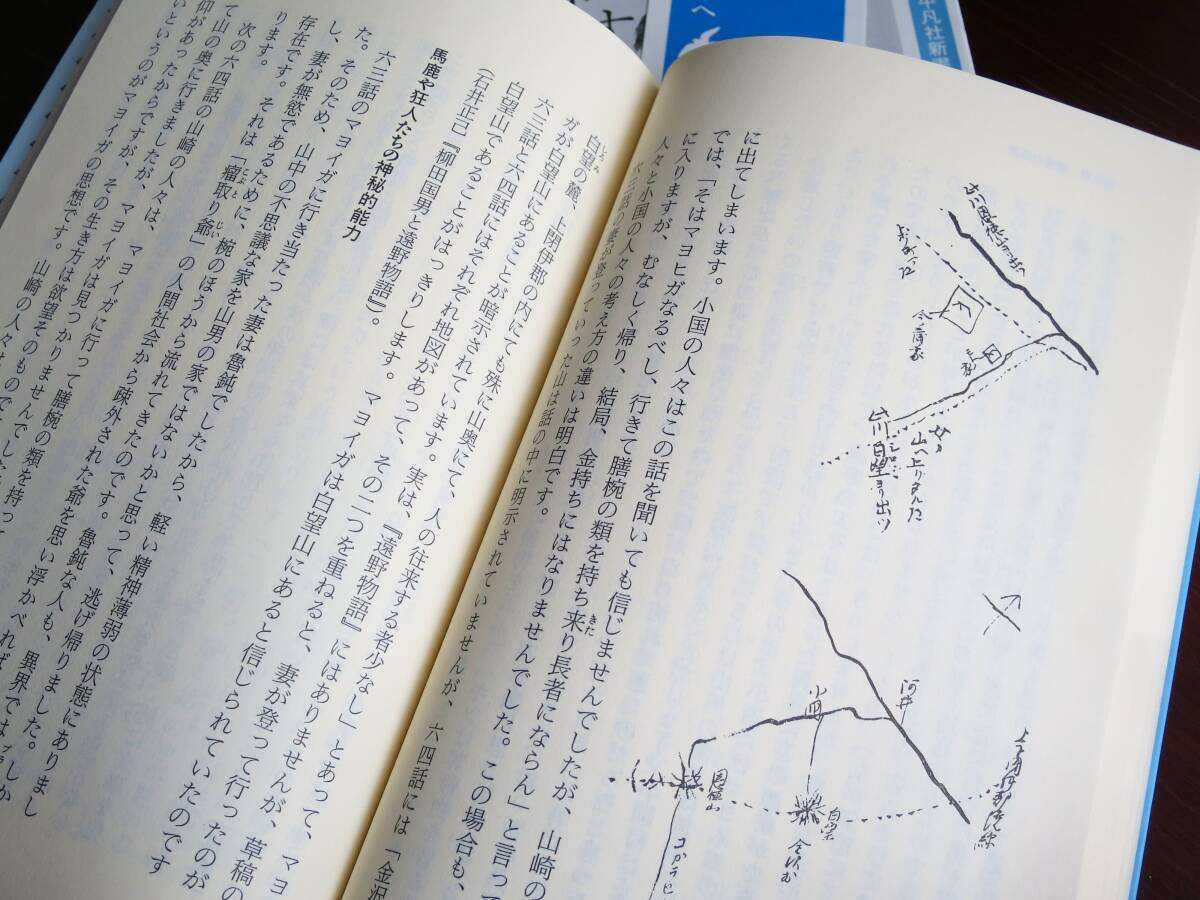 平凡社新書
へ
河井
小国
白望
山へ上りタル所
に出てしまいます。小国の人々はこの話を聞いても信じませんでしたが、山崎の
では、「そはマヨヒガなるべし、行きて膳椀の類を持ち来り長者にならん」と言って
に入りますが、むなしく帰り、結局、金持ちにはなりませんでした。この場合も、
人々と小国の人々の考え方の違いは明白です。
六三話の妻が登っていった山は話の中に明示されていませんが、六四話には「金沢
白望の麓、上閉伊郡の内にても殊に山奥にて、人の往来する者少なし」とあって、マヨ
ガが白望山にあることが暗示されています。実は、『遠野物語』にはありませんが、草稿の
六三話と六四話にはそれぞれ地図があって、その二つを重ねると、妻が登って行ったのが
白望山であることがはっきりします。マヨイガは白望山にあると信じられていたのです
（石井正己『柳田国男と遠野物語』）。
馬鹿や狂人たちの神秘的能力
六三話のマヨイガに行き当たった妻は魯鈍でしたから、軽い精神薄弱の状態にありまし
た。そのため、山中の不思議な家を山男の家ではないかと思って、逃げ帰りました。しか
し、妻が無慾であるために、椀のほうから流れてきたのです。魯鈍な人も、異界ではプラ
存在です。それは「瘤取り爺」の人間社会から疎外された爺を思い浮かべれば
ります。
次の六四話の山崎の人々は、マヨイガに行って膳椀の類を持って
て山の奥に行きましたが、マヨイガは見つかりませんでした
仰があったからですが、その生き方は欲望そのものでした
いというのがマヨイガの思想です。山崎の人々は